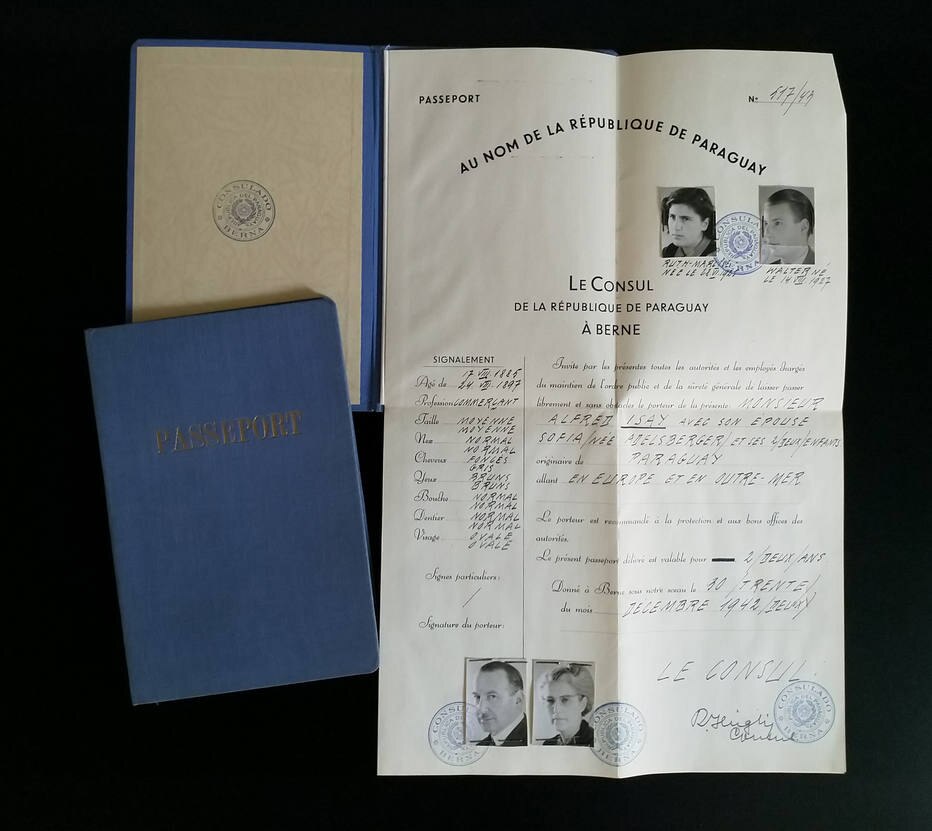 CONSULADO
BERNA
PASSEPORT
PASSEPORT
No 517/43
AU NOM DE LA RÉPUBLIQUE DE PARAGUAY
CONSULADO
REPUBLICA DEL PARAGUAY
RUTH-MAR
WALTER NÉ
LE 14 VIII 1927
LE CONSUL
DE LA RÉPUBLIQUE DE PARAGUAY
À BERNE
SIGNALEMENT
17 VIII 1885
Agé de 24 VII 1897
Profession COMMERÇANT
Taille MOYENNE
MOYENNE
Nez NORMAL
NORMAL
Cheveux FONCÉS
GRIS
Yeux BRUNS
BRUNS
Bouche NORMAL
NORMAL
Dentier NORMAL
NORMAL
Visage OVALE
OVALE
Signes particuliers:
/
Signature du porteur:
Invite par les présentes toutes les autorités et les employés chargés
du maintien de l'ordre public et de la sûreté générale de laisser passer
librement et sans obstacles le porteur de la présente: MONSIEUR
ALFRED ISAY AVEC SON EPOUSE
SOFIA/NÉE ADELSBERGER/ET SES 2/DEUX/ENFANTS
originaire de PARAGUAY
allant EN EUROPE ET EN OUTRE-MER
Le porteur est recommandé à la protection et aux bons offices des
autorités.
Le présent passeport délivré est valable pour 2/DEUX/ANS
Donné à Berne sous notre sceau le 30/TRENTE/
du mois DECEMBRE 1942/DEUX/
LE CONSUL:
Consul
CONSULADO
BERNA
CONSULADO
BERNA
CONSULADO
BERNA